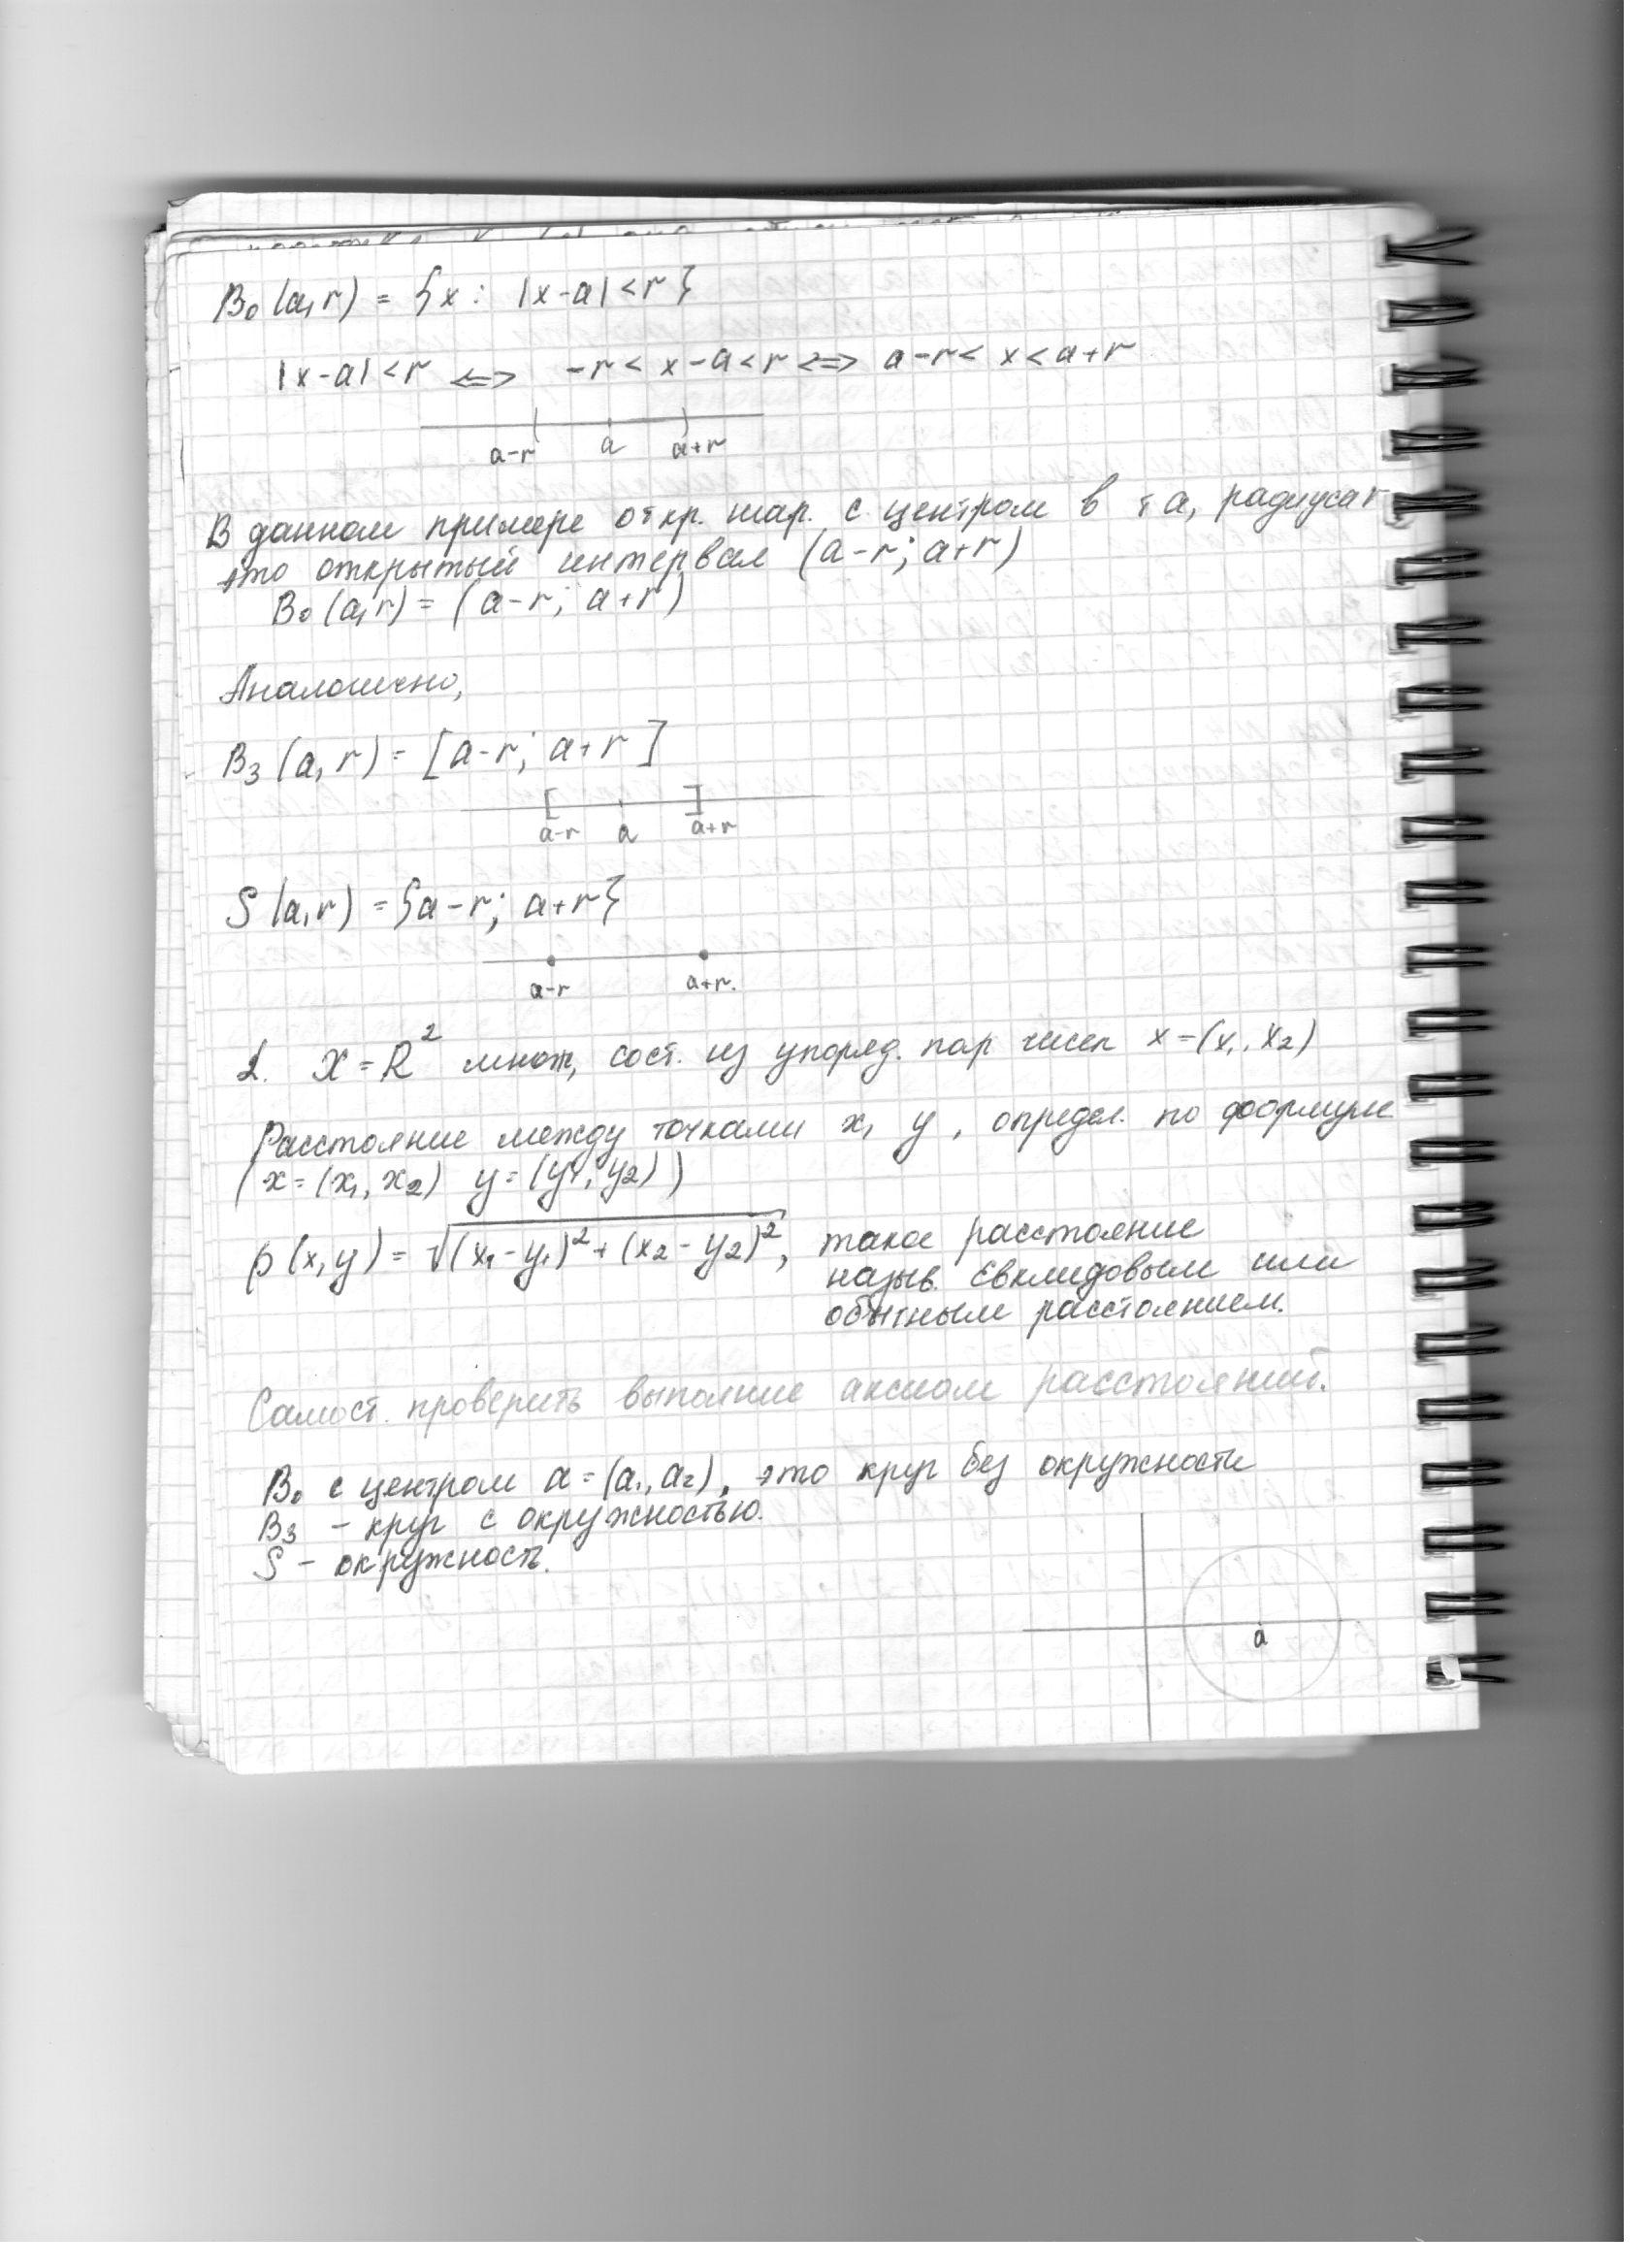 B₀(a,r) = {x: |x-a|<r}
|x-a|<r <=> -r < x-a<r <=> a-r< x<a+r
a-r a a+r
В данном примере откр. шар. с центром в т а, радиуса r
это открытый интервал (a-r; a+r)
B₀(a,r) = (a-r; a+r)
Аналогично,
B₃(a, r) = [a-r; a+r]
a-r a a+r
S(a,r) = {a-r; a+r}
a-r a+r.
2. X = R² множ, сост. из упоряд. пар чисел x=(x₁, x₂)
Расстояние между точками x, y, определ. по формуле
(x=(x₁, x₂) y=(y₁, y₂))
ρ(x,y) = √(x₁-y₁)²+(x₂-y₂)², такое расстояние
назыв. Евклидовым или
обычным расстоянием.
Самост. проверить выполние аксиом расстояний.
B₀ с центром a=(a₁,a₂), это круг без окружности
B₃ - круг с окружностью.
S - окружность.
a